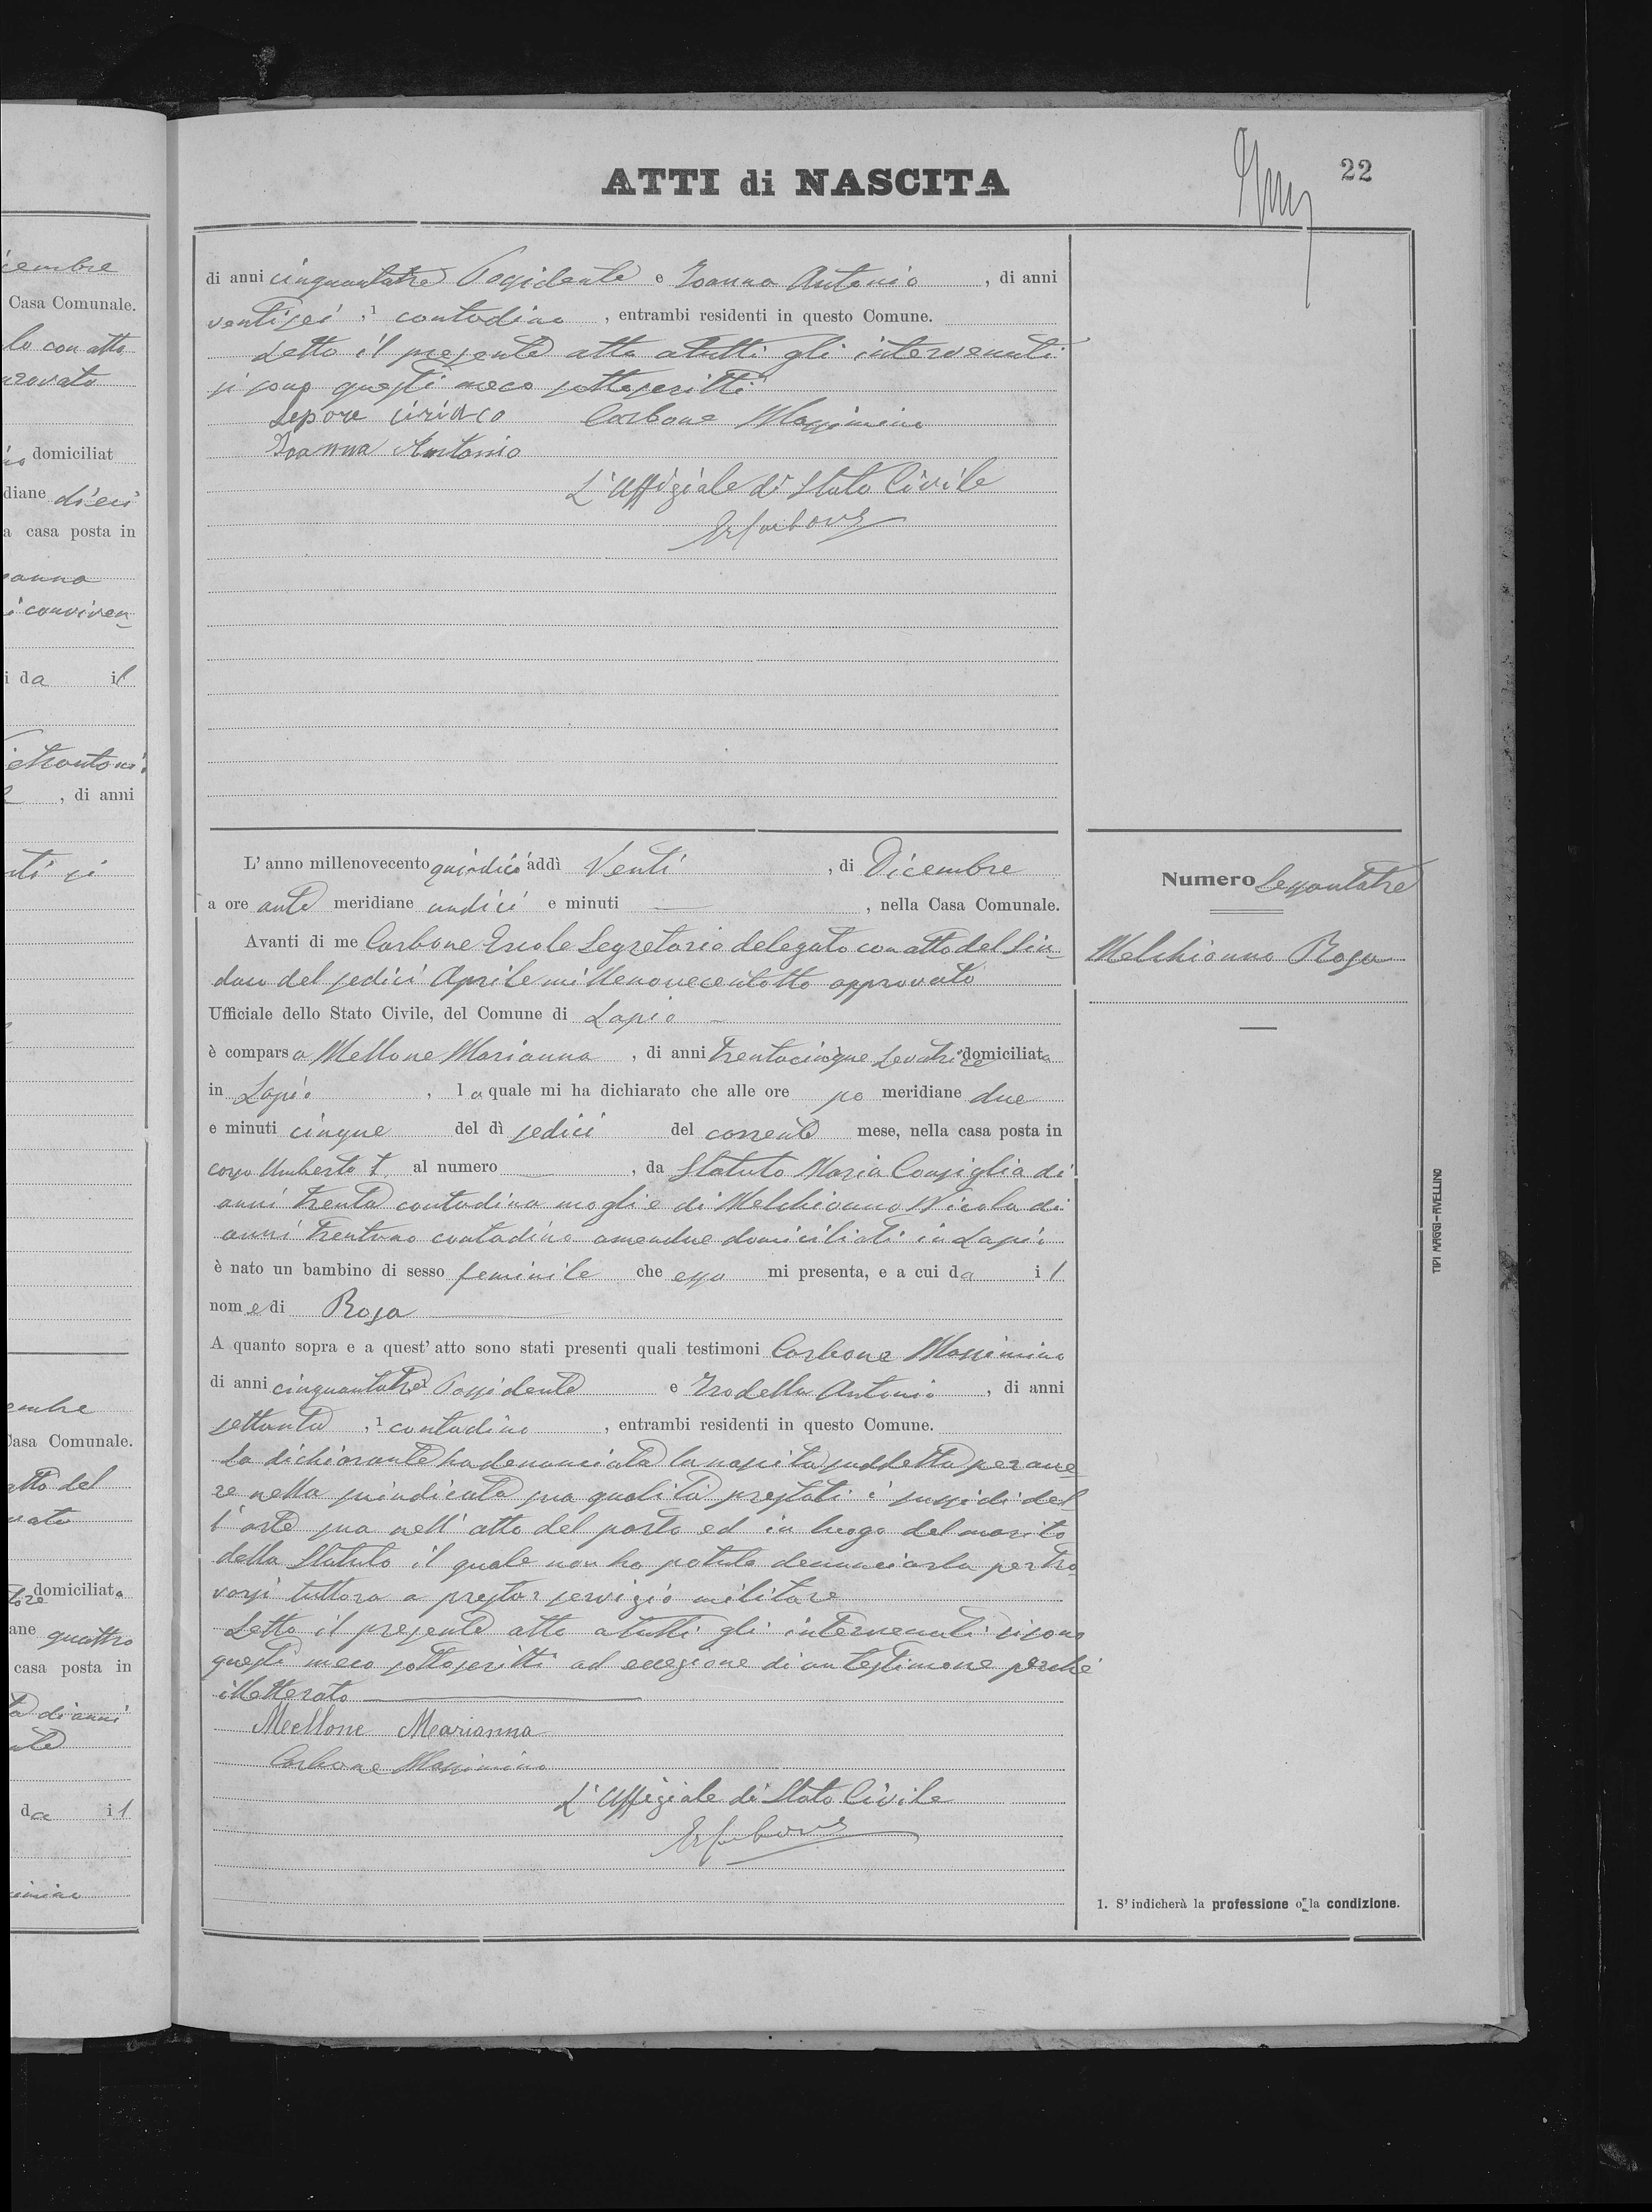 cembre
Casa Comunale.
lo con atto
provato
domiciliat
diane dieci
a casa posta in
oanna
i conviven
i da il
, di anni
nti si
embre
Casa Comunale.
atto del
vato
domiciliata
tore
ane quattro
casa posta in
ta di anni
te
da il
imino
22
ATTI di NASCITA
di anni cinquantatre Possidente e Joanna Antonio, di anni
ventisei, 1 contadino, entrambi residenti in questo Comune.
Letto il presente atto a tutti gli intervenuti
si sono questi meco sottoscritti
Lepore Ciriaco Carbone Massimino
Joanna Antonio
L'Uffiziale di Stato Civile
L'anno millenovecento quindici addì Venti, di Dicembre
a ore ante meridiane undici e minuti —, nella Casa Comunale.
Avanti di me Carbone Ercole Segretario delegato con atto del Sin-
daco del sedici Aprile millenovecentotto approvato
Ufficiale dello Stato Civile, del Comune di Lapio —
è comparsa Mellone Marianna, di anni trentacinque Levatrice domiciliata
in Lapio, la quale mi ha dichiarato che alle ore po meridiane due
e minuti cinque del dì sedici del corrente mese, nella casa posta in
corso Umberto I al numero —, da Statuto Maria Consiglia di
anni trenta contadina moglie di Melchionno Nicola di
anni trentuno contadino amendue domiciliati in Lapio
è nato un bambino di sesso feminile che essa mi presenta, e a cui da il
nome di Rosa —
A quanto sopra e a quest'atto sono stati presenti quali testimoni Carbone Massimino
di anni cinquantatre 1 Possidente e Trodella Antonio, di anni
settanta, 1 contadino, entrambi residenti in questo Comune.
La dichiarante ha denunciata la nascita suddetta per ave-
re nella suindicata sua qualità prestati i sussidi del-
l'arte sua nell'atto del parto ed in luogo del marito
della Statuto il quale non ha potuto denunciarla per tro-
varsi tuttora a prestar servizio militare
Letto il presente atto a tutti gli intervenuti si sono
questi meco sottoscritti ad eccezione di un testimone perchè
illetterato —
Mellone Marianna
Carbone Massimino
L'Uffiziale di Stato Civile
Numero Sessantatre
Melchionno Rosa
—
TIPI MAGGI-AVELLINO
1. S'indicherà la professione o la condizione.